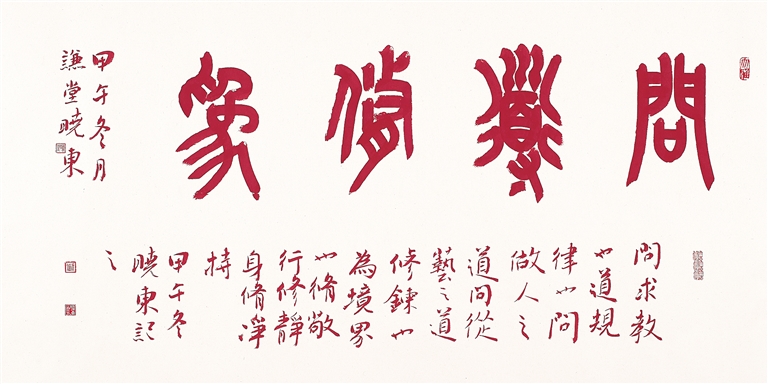 問道修為
甲午冬月
謙堂曉東
問求教
也道規
律也問
做人之
道問從
藝之道
修鍊也
為境界
也脩敞
行修靜
身脩淨
持
甲午冬
曉東記
之